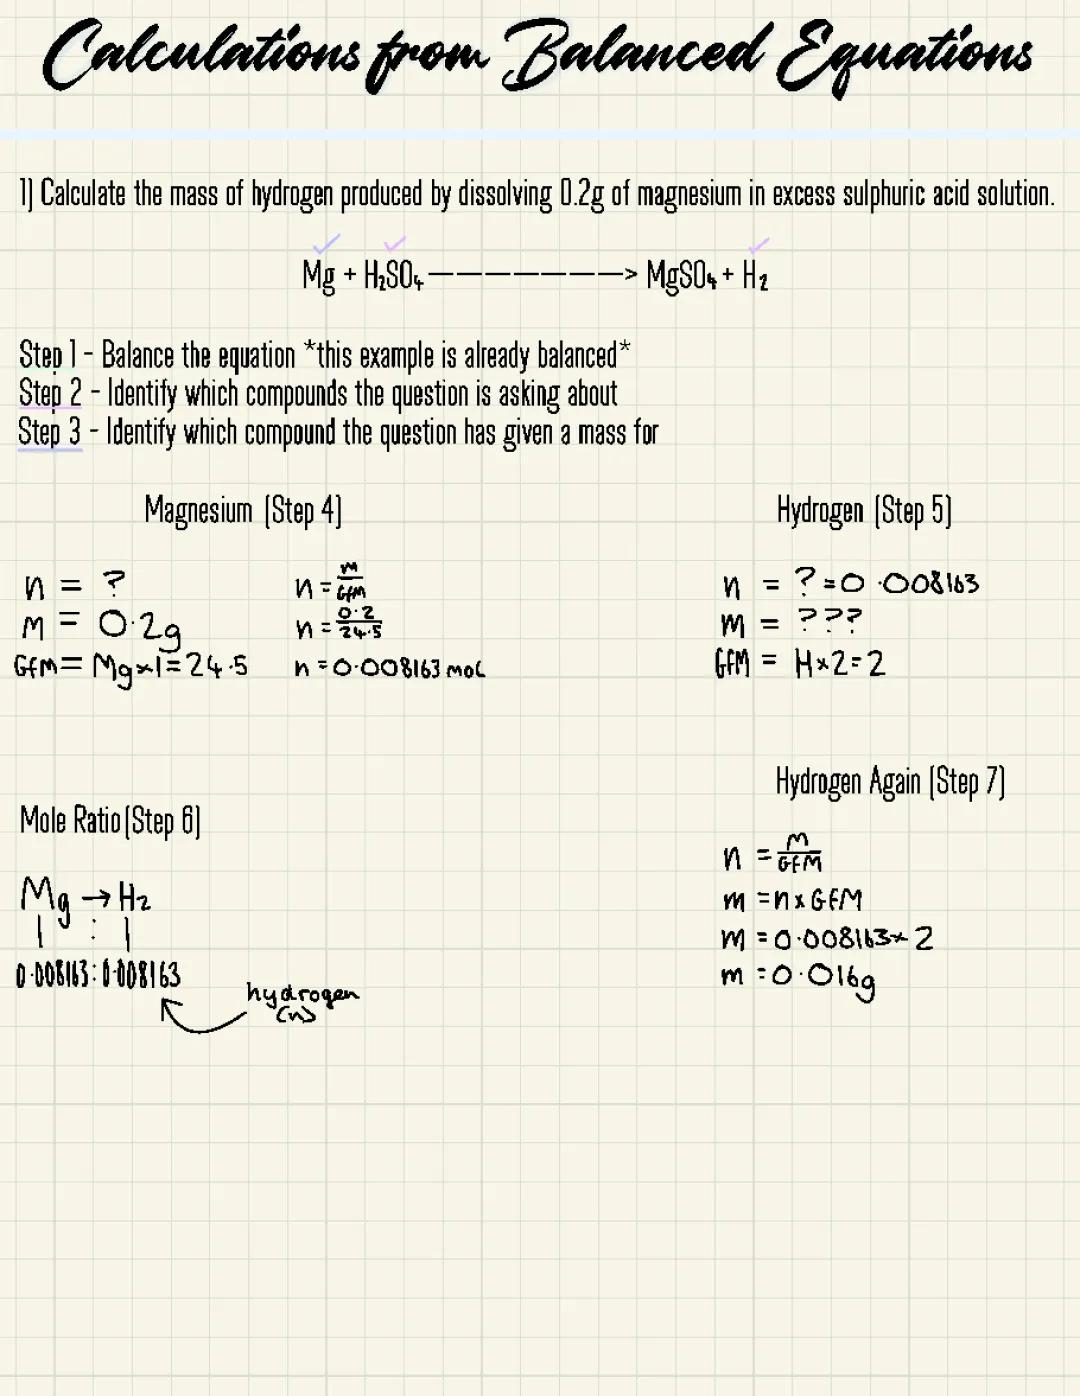 Calculations from Balanced Equations
1) Calculate the mass of hydrogen produced by dissolving 0.2g of magnesium in excess sulphuric acid solution.
Mg + H₂SO₄ ————————> MgSO₄ + H₂
Step 1 - Balance the equation *this example is already balanced*
Step 2 - Identify which compounds the question is asking about
Step 3 - Identify which compound the question has given a mass for
Magnesium (Step 4)
n = ?
m = 0.2g
GFM = Mg×1=24.5
n = m/GFM
n = 0.2/24.5
n = 0.008163 mol
Hydrogen (Step 5)
n = ? = 0.008163
m = ???
GFM = H×2=2
Mole Ratio (Step 6)
Mg → H₂
1 : 1
0.008163 : 0.008163
hydrogen
(n)
Hydrogen Again (Step 7)
n = m/GFM
m = n × GFM
m = 0.008163 × 2
m = 0.016g